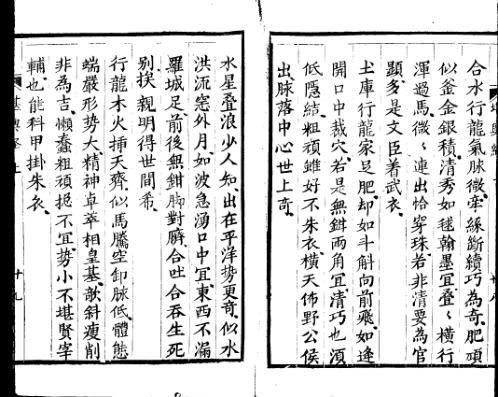 合水行龍氣脉微牽線斷續巧為奇肥頑
似釜金銀積清秀如毬翰墨宜疊〻橫行
渾過馬微〻連出恰穿珠若非清要為官
顯多是文臣着武衣
土庫行龍家足肥却如斗斛向前飛如逢
開口中裁穴若是無鉗兩角宜清巧也須
低隱結粗頑雖好不朱衣橫天佈野公侯
出脉落中心世上奇
水星疊浪少人知出在平洋勢更奇似水
洪流巒外月如波急湧口中宜東西不漏
羅城足前後無鉗脚對臍合吐合吞生死
別挨親明得世間希
行龍木火揷天齊似馬騰空卸脉低體態
端嚴形勢大精神卓萃相皇基欹斜瘦削
非為吉懶蠢粗頑挹不宜勢小不堪賢宰
輔也能科甲掛朱衣
堪輿 上
十九